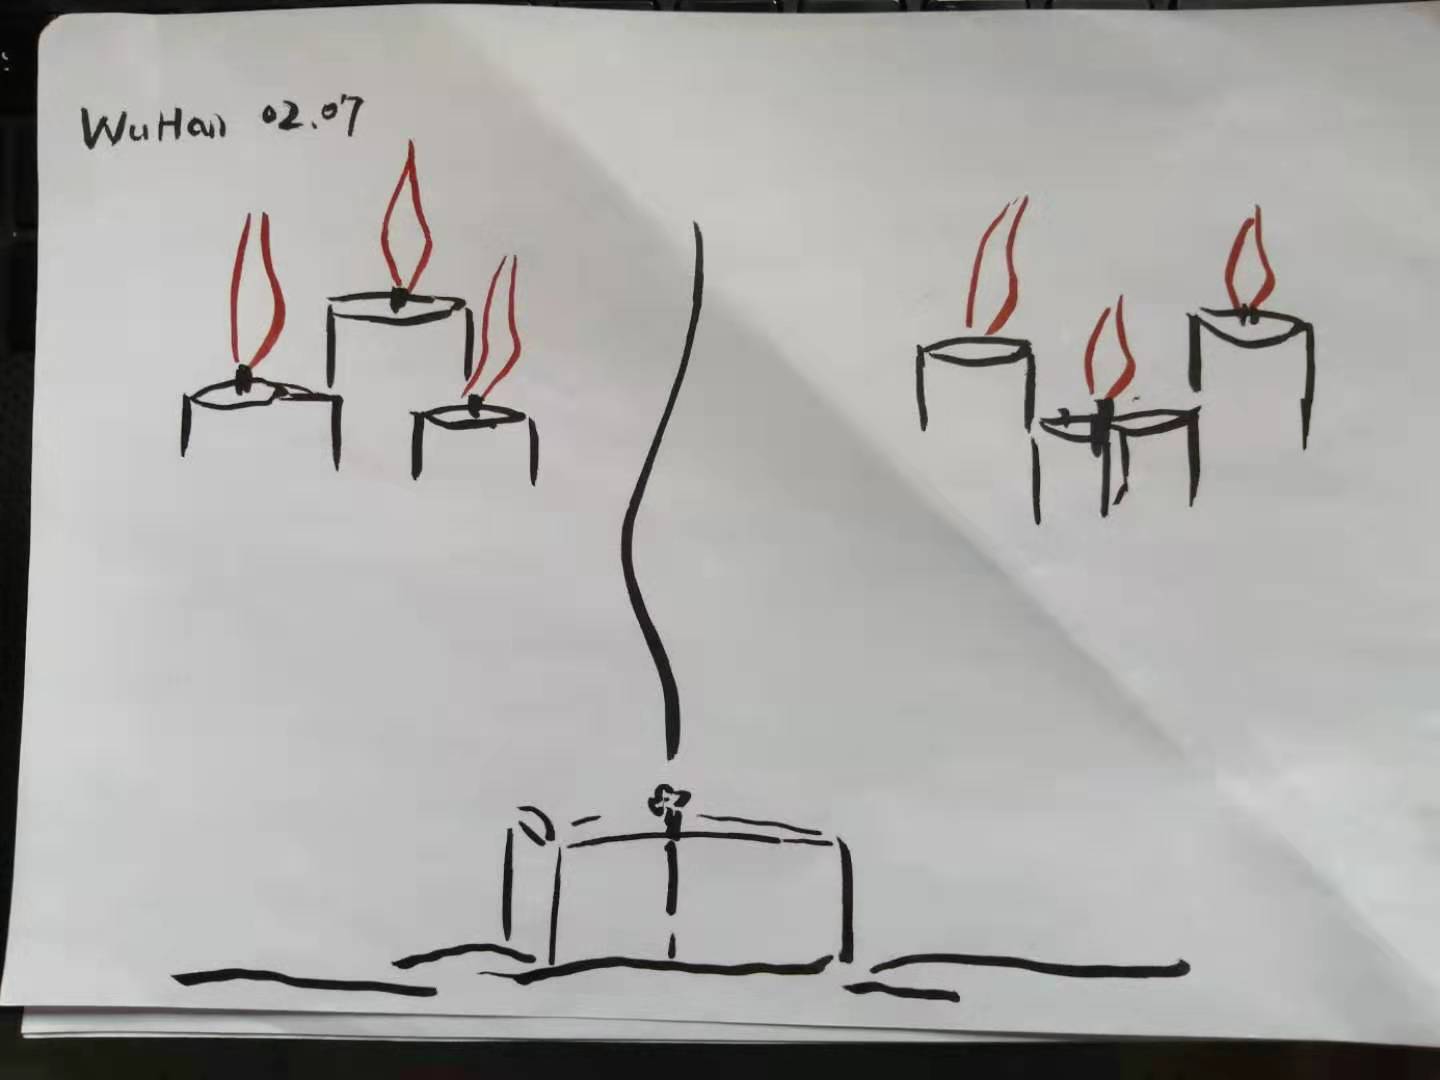 WuHan 02.07